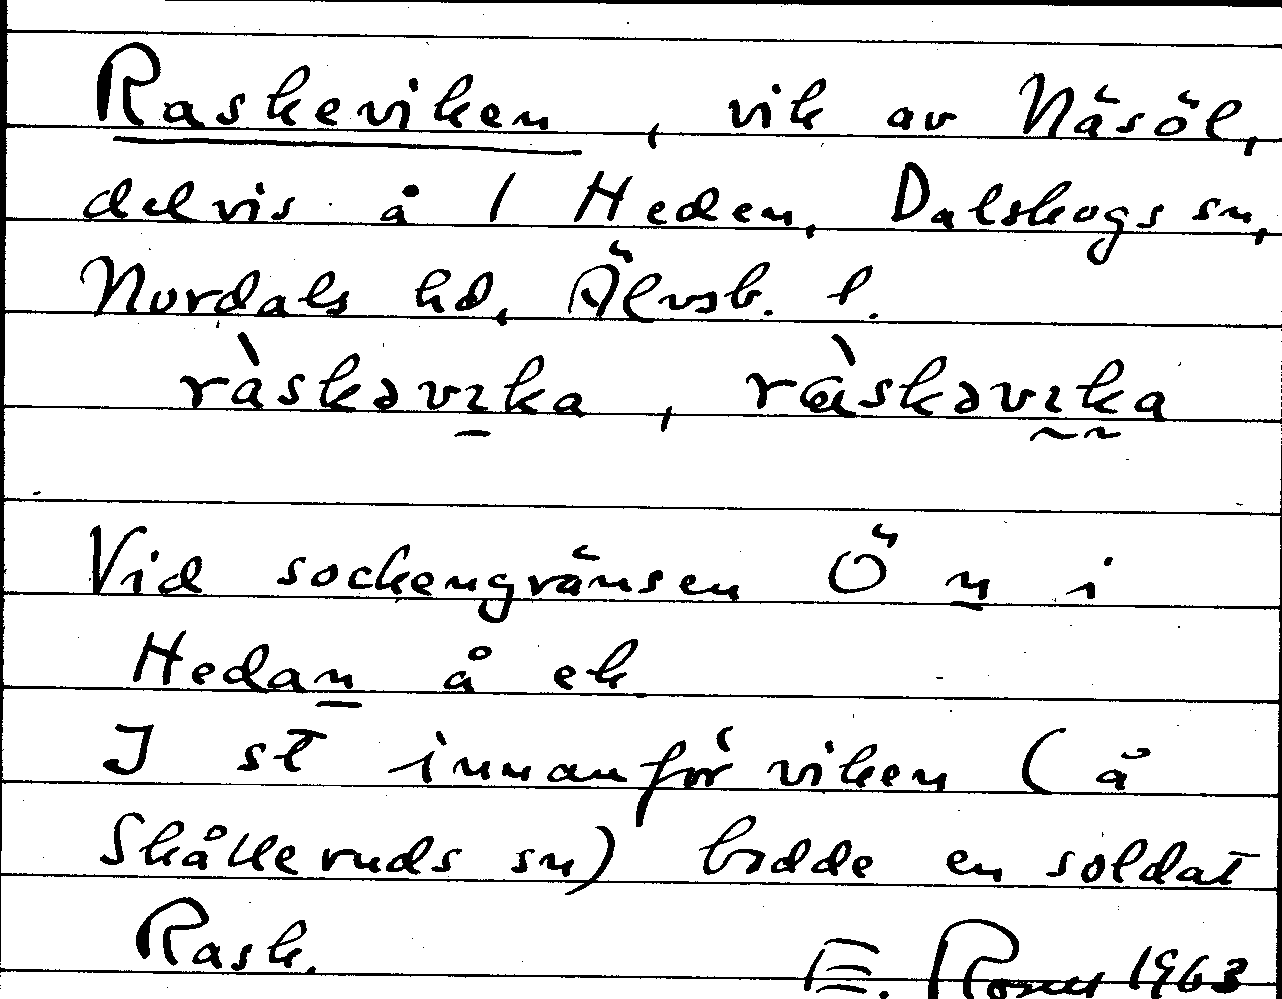 Raskeviken, vik av Näsöl,
delvis å 1 Heden, Dalskogs sn,
Nordals hd, Älvsb. l.
ràskəvɪka, ràskəvɪka
Vid sockengränsen Ö n i
Hedan å ek.
I st innanför viken (å
Skålleruds sn) bodde en soldat
Rask. E. Rosell 1963